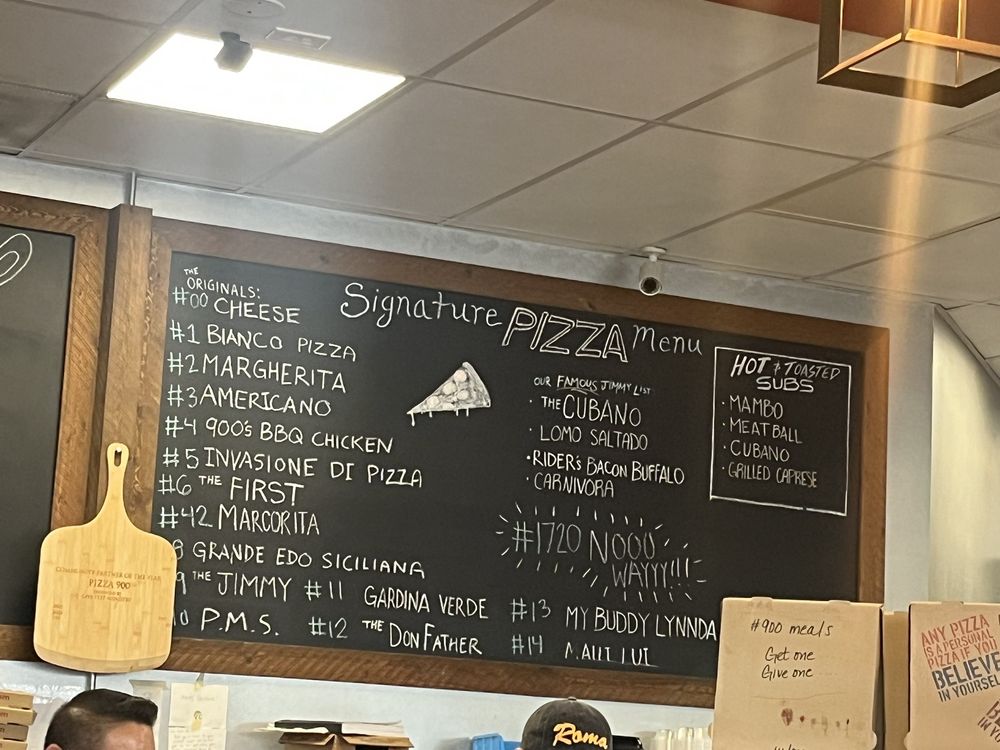 THE
ORIGINALS:
#00 CHEESE
#1 BIANCO PIZZA
#2 MARGHERITA
#3 AMERICANO
#4 900's BBQ CHICKEN
#5 INVASIONE DI PIZZA
#6 THE FIRST
#42 MARCORITA
8 GRANDE EDO SICILIANA
9 THE JIMMY
10 P.M.S.
#11 GARDINA VERDE
#12 THE DON FATHER
Signature PIZZA Menu
OUR FAMOUS JIMMY LIST
· THE CUBANO
· LOMO SALTADO
· RIDER'S BACON BUFFALO
· CARNIVORA
#1720 NOOO
WAYYY!!!
#13 MY BUDDY LYNNDA
#14
HOT & TOASTED
SUBS
· MAMBO
· MEATBALL
· CUBANO
· GRILLED CAPRESE
COMMUNITY PARTNER OF THE YEAR
PIZZA 900
#900 meals
Get one
Give one
ANY PIZZA
IS A PERSONAL
PIZZA IF YOU
BELIEVE
IN YOURSELF
Roma